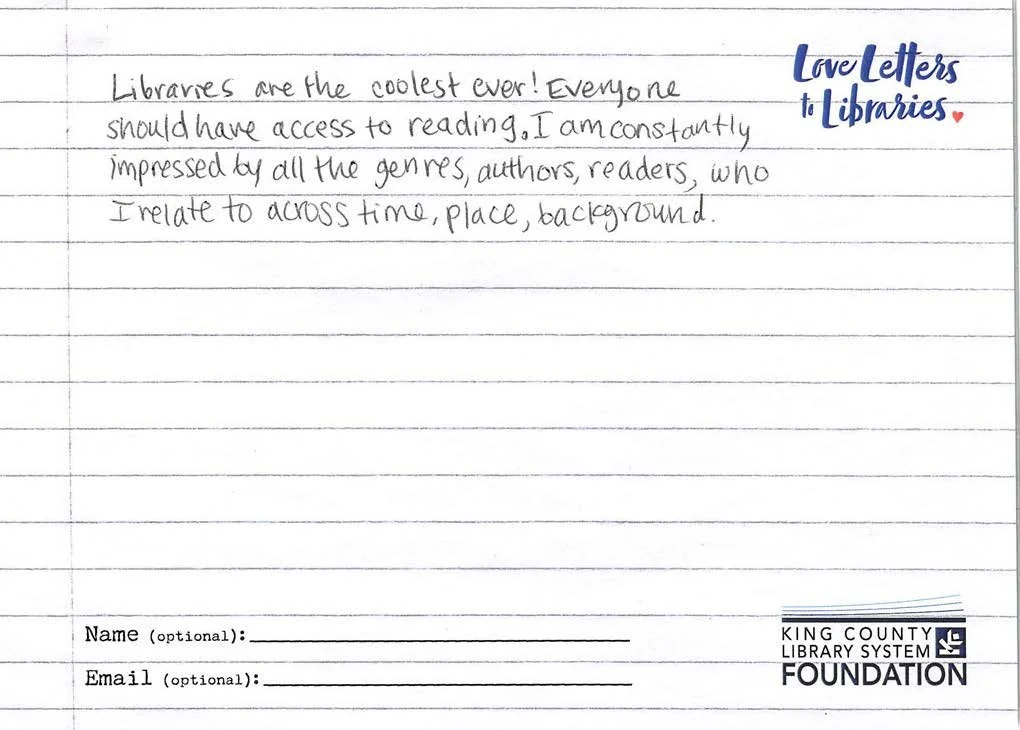 Love Letters
to Libraries
Libraries are the coolest ever! Everyone
should have access to reading. I am constantly
impressed by all the genres, authors, readers, who
I relate to across time, place, background.
Name (optional):
Email (optional):
KING COUNTY
LIBRARY SYSTEM
FOUNDATION